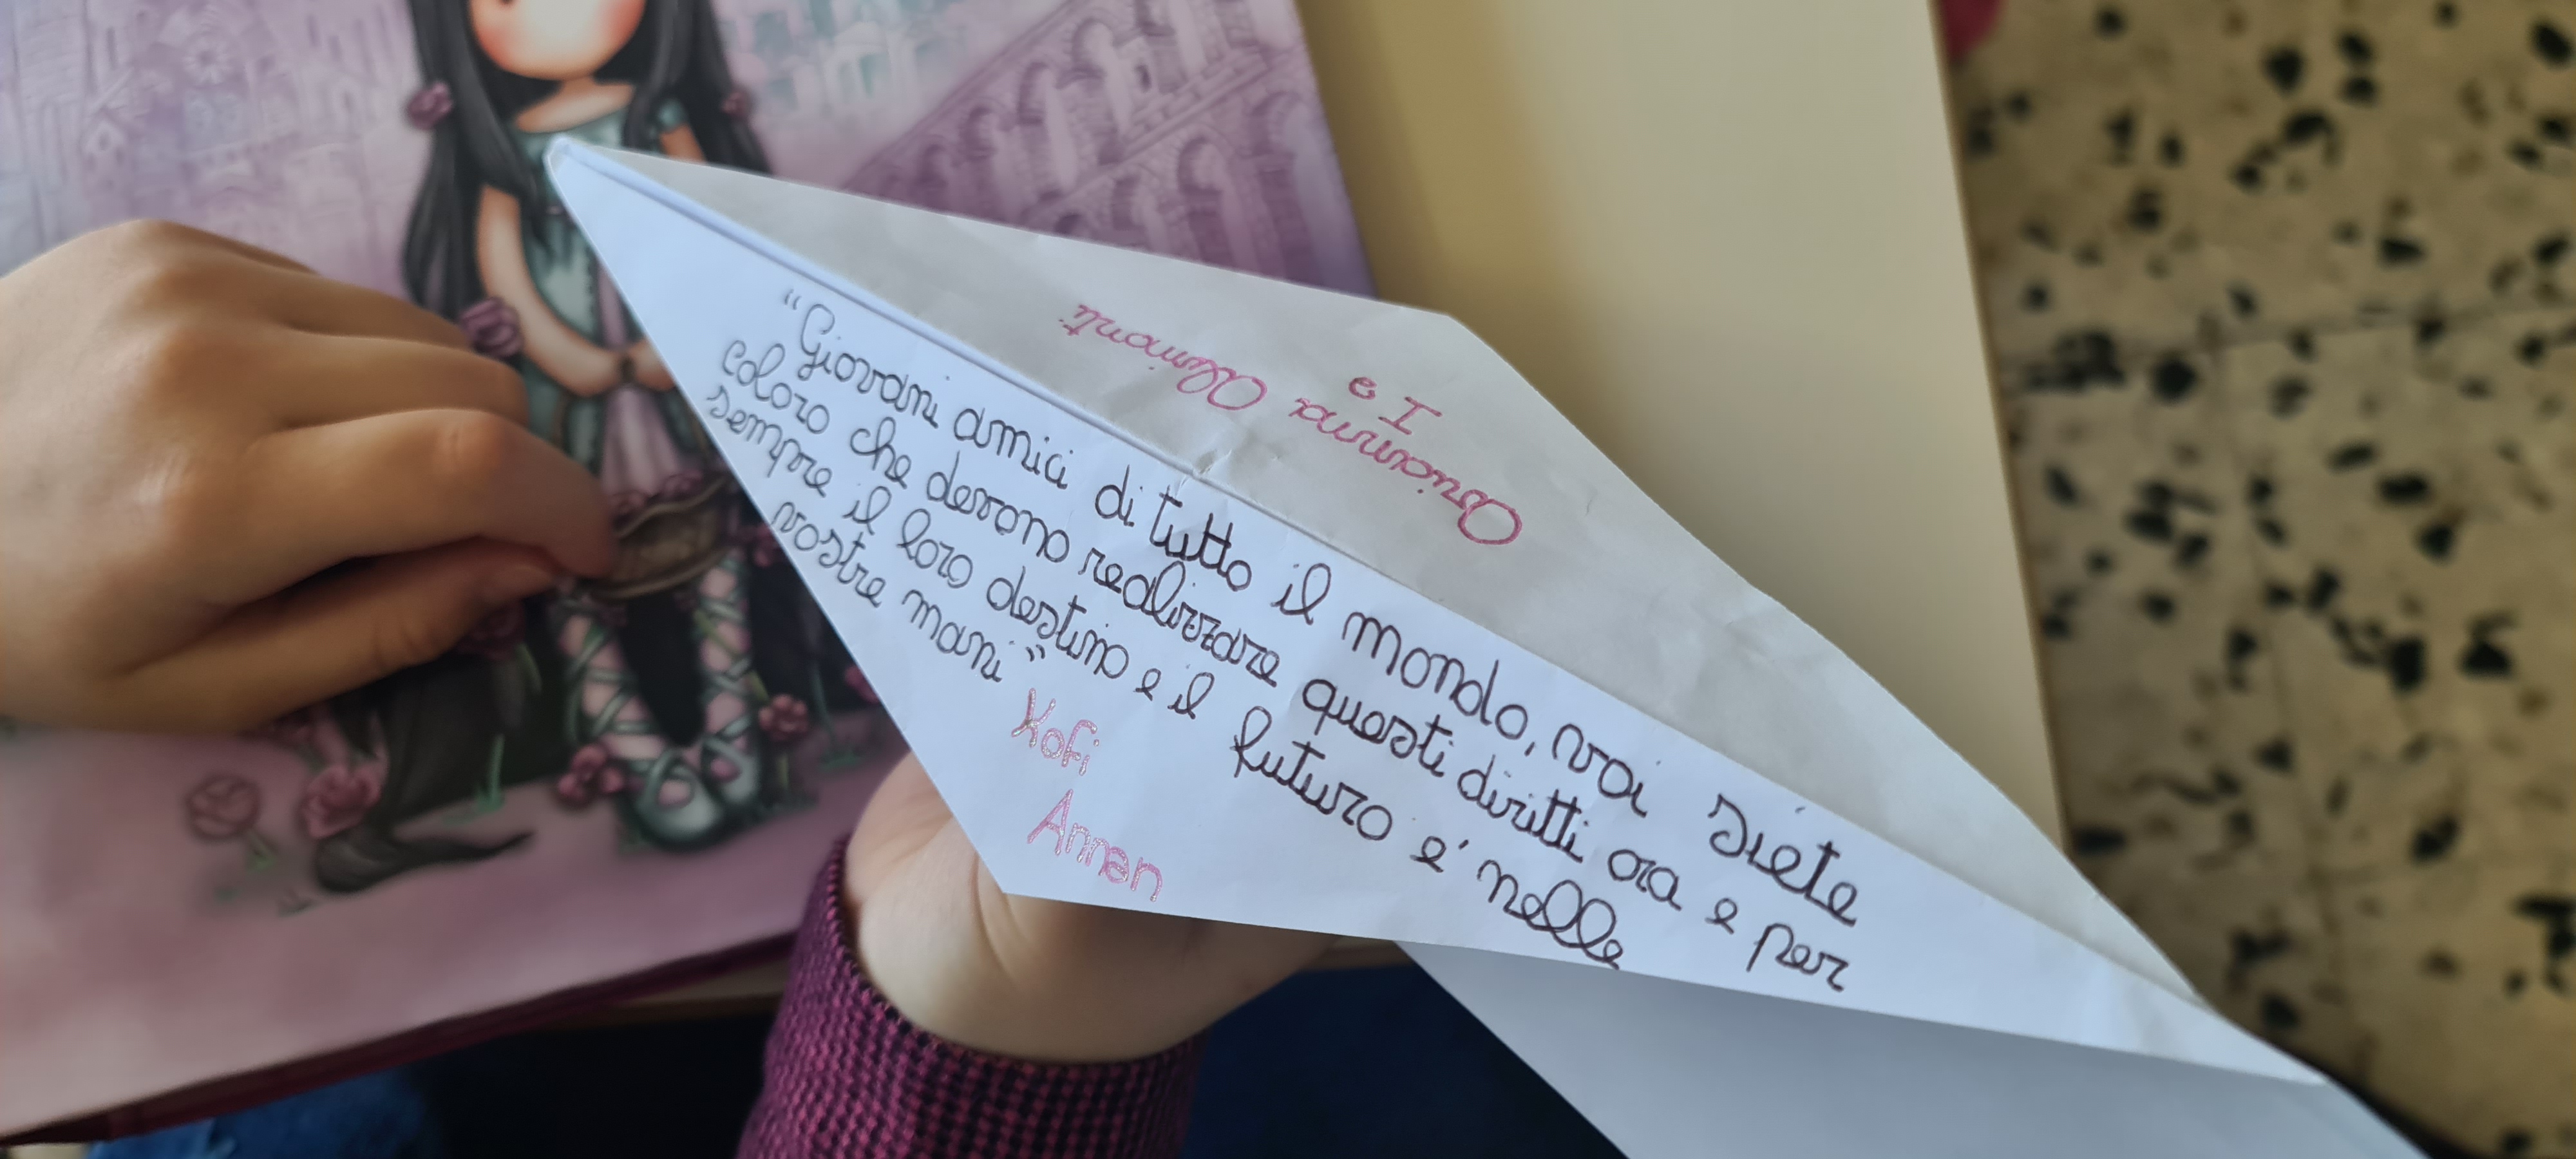 "Giovani amici di tutto il mondo, voi siete
coloro che devono realizzare questi diritti ora e per
sempre il loro destino e il futuro e' nelle
vostre mani"
Kofi
Annan
Arianna Alimonti
I e